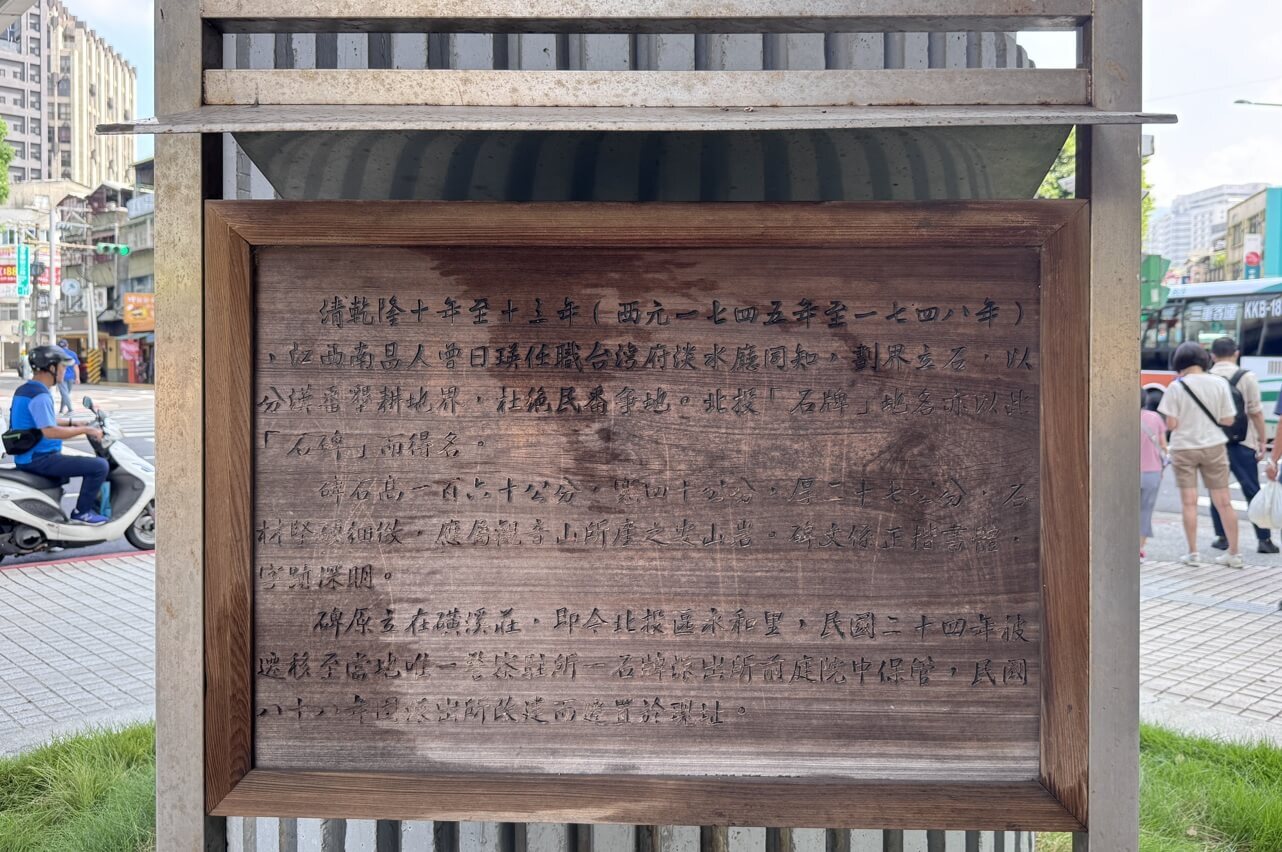 清乾隆十年至十三年（西元一七四五年至一七四八年）
，江西南昌人曾日瑛任職台灣府淡水廳同知，劃界立石，以
分漢番墾耕地界，杜絶民番爭地。北投「石牌」地名亦以此
「石碑」而得名。
碑石高一百六十公分，寬四十公分，厚二十七公分，石
材堅硬細緻，應為觀音山所產之安山岩。碑文係正楷書體，
字跡深明。
碑原立在磺溪莊，即今北投區永和里，民國二十四年被
遷移至當地唯一警察駐所—石牌派出所前庭院中保管，民國
八十八年因派出所改建而遷置於現址。
KKB-18